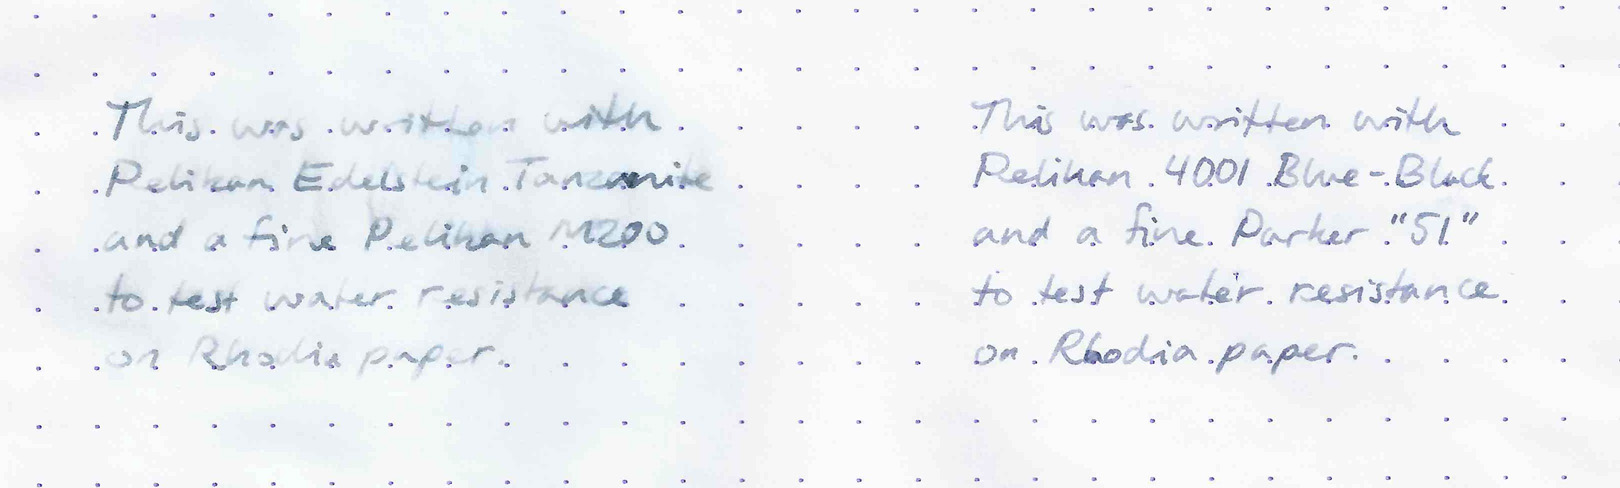 This was written with
Pelikan Edelstein Tanzanite
and a fine Pelikan M200
to test water resistance
on Rhodia paper.
This was written with
Pelikan 4001 Blue-Black
and a fine Parker "51"
to test water resistance
on Rhodia paper.